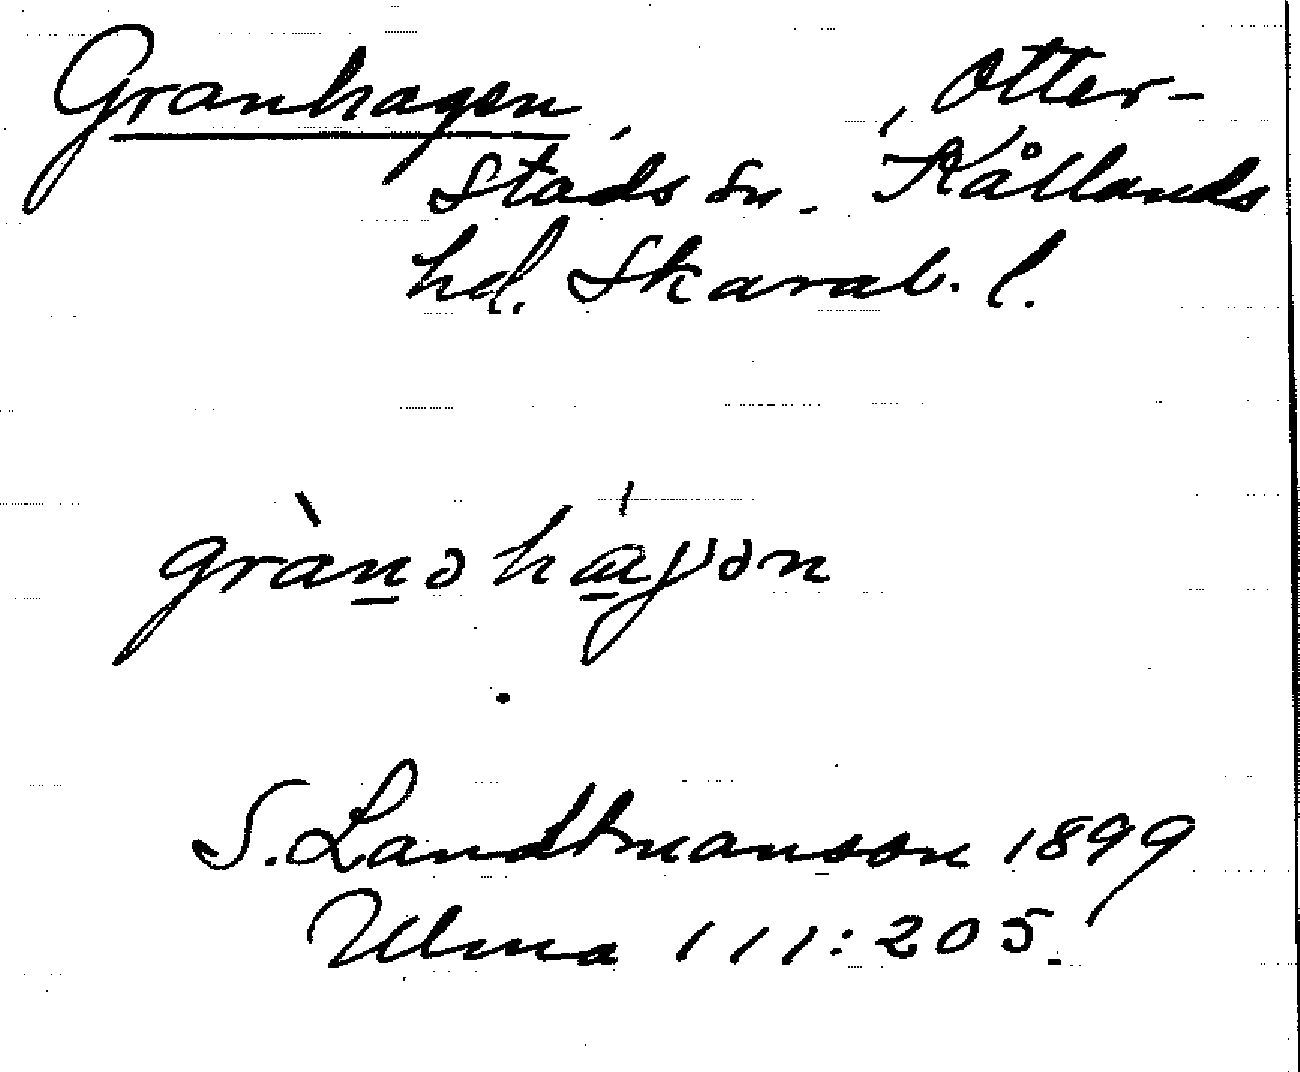 Granhagen, , Otter-
stads sn. Kållands
hd. Skarab. l.
grànəhájən
S. Landtmanson 1899
Ulma 111:205.